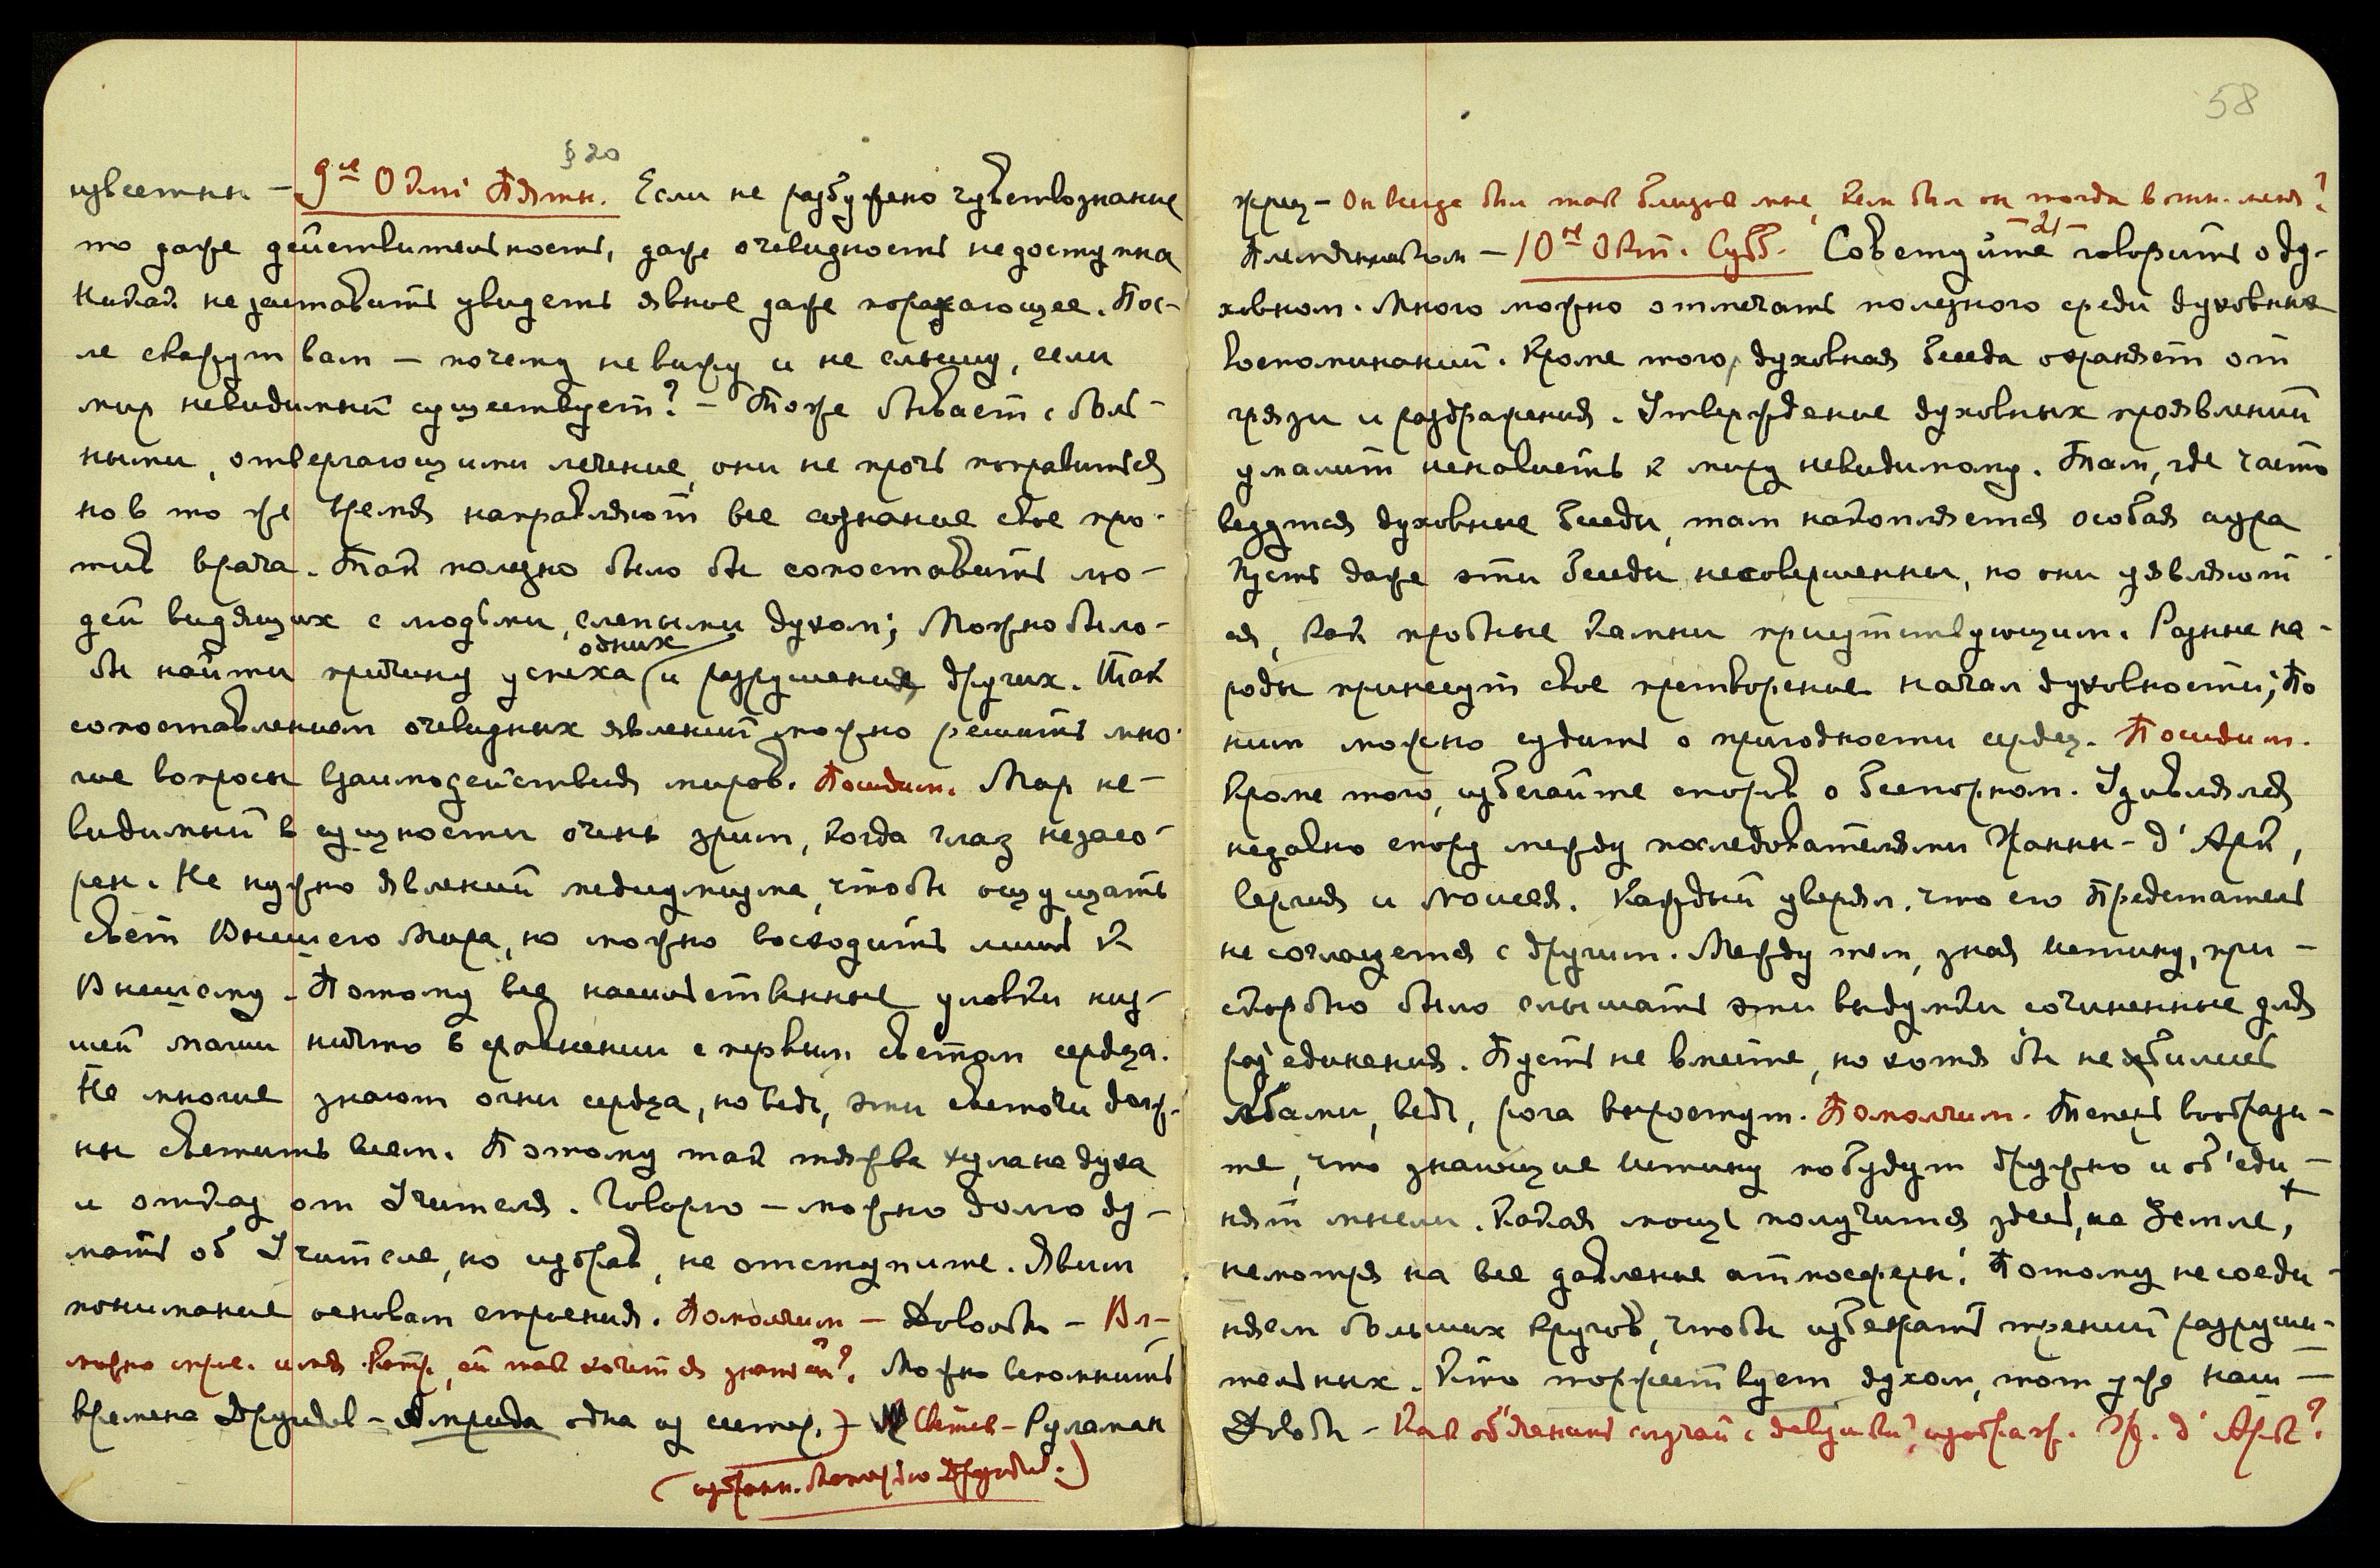 § 20
известны — 9го Окт. Пятн. Если не разбужено чувствознание
то даже действительность, даже очевидность недоступна
Никак не заставить увидеть явное даже поражающее. Пос-
ле скажут вам — почему не вижу и не слышу, если
мир невидимый существует? — Тоже бывает с боль-
ными, отвергающими лечение, они не прочь поправиться
но в то же время направляют все сознание свое про-
тив врача. Так полезно было бы сопоставить лю-
дей видящих с людьми, слепыми духом; Можно было-
бы найти причину успеха одних и разрушения других. Так
сопоставлением очевидных явлений можно решить мно-
гие вопросы взаимодействия миров. Посидим. Мир не-
видимый в сущности очень зрим, когда глаз незасо-
рен. Не нужно явлений медиумизма, чтобы ощущать
свет Высшего Мира, но можно восходить лишь к
Высшему. Потому все насильственные уловки низ-
шей магии ничто в сравнении с первым светом сердца.
Не многие знают огни сердца, но ведь, эти светочи долж-
ны светить всем. Потому так тяжка хула на духа
и отказ от Учителя. Говорю — можно долго ду-
мать об Учителе, но избрав, не отступите. Явим
понимание основам строения. Помолчим — Довольно — Вл-
можно имя ей так хочется знать? Можно вспомнить
времена Друидов — одна из сестер. — Светов — Руламан
58
жрец — Он всегда был так близок мне, кем был он тогда в отн. меня?
Племянником — 10го Окт. Субб. Советуйте говорить о ду-
— 21 —
ховном. Много можно отмечать полезного среди духовных
воспоминаний. Кроме того, духовная беседа охраняет от
грязи и раздражения. Утверждение духовных проявлений
умалит ненависть к миру невидимому. Там, где часто
ведутся духовные беседы, там накопляется особая аура
Пусть даже эти беседы несовершенны, но они уявляют
ся, как пробные камни присутствующим. Разные на-
роды принесут свое претворение начал духовности; По
ним можно судить о пригодности сердец. Посидим.
Кроме того, избегайте споров о бесспорном. Удивлялся
недавно спору между последователями Жанны-д'Арк,
Сергия и Моисея. Каждый уверял, что его Предстатель
не соглашается с другим. Между тем, зная Истину, при-
скорбно было слышать эти выдумки сочиненные для
раз'единения. Пусть не вместе, но хотя бы не бились
лбами, ведь, рога вырастут. Помолчим. Теперь вообрази-
те, что знающие Истину побудут дружно и об'еди-
нят мысли. Какая мощь получится здесь, на Земле,
несмотря на все давление атмосферы! Потому не соеди-
няем больших кругов, чтобы избежать трений разруши-
тельных. Кто торжествует духом, тот уже наш —
Довольно — Как об'яснить случай с девушкой, изображ. Ж. д'Арк?